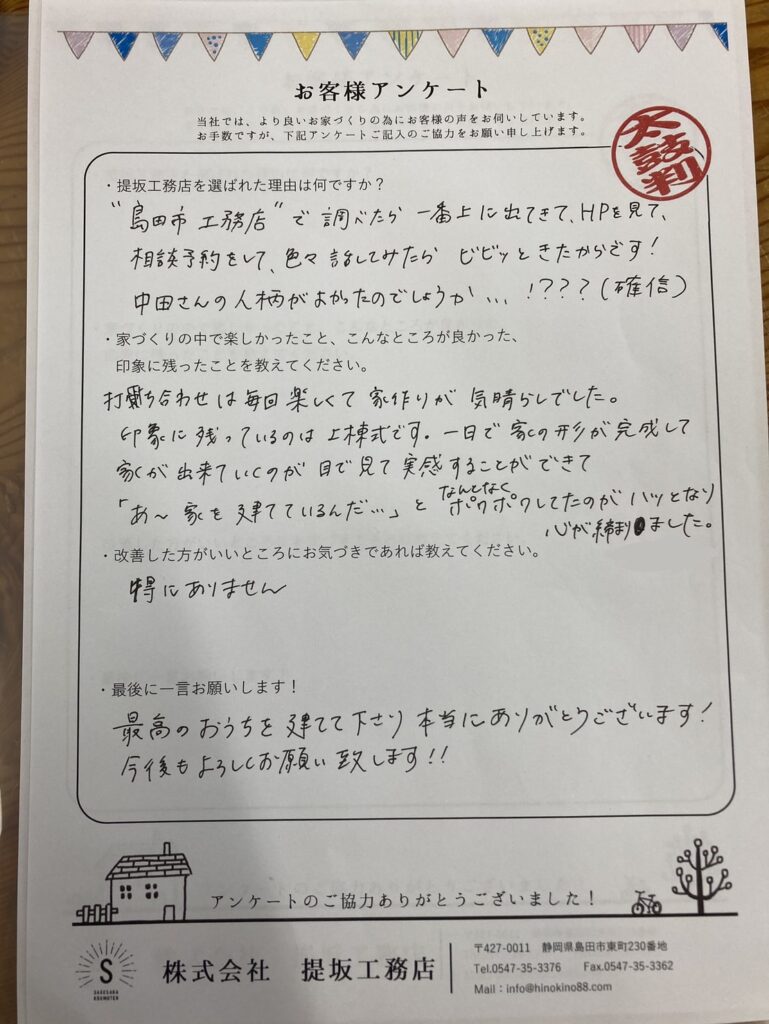 お客様アンケート
当社では、より良いお家づくりの為にお客様の声をお伺いしています。
お手数ですが、下記アンケートご記入のご協力をお願い申し上げます。
太鼓判
・提坂工務店を選ばれた理由は何ですか？
"島田市 工務店"で 調べたら 一番上に出てきて、HPを見て、
相談予約をして、色々 話してみたら ビビッときたからです！
中田さんの人柄がよかったのでしょうか… !???(確信)
・家づくりの中で楽しかったこと、こんなところが良かった、
印象に残ったことを教えてください。
打ち合わせは毎回楽しくて 家作りが 気晴らしでした。
印象に残っているのは上棟式です。一日で家の形が完成して
家が出来ていくのが 目で見て 実感することができて
「あ〜 家を建てているんだ…」と なんとなく ポワポワしてたのが ハッとなり
心が締まりました。
・改善した方がいいところにお気づきであれば教えてください。
特にありません
・最後に一言お願いします！
最高のおうちを建てて下さり 本当にありがとうございます！
今後もよろしくお願い致します!!
アンケートのご協力ありがとうございました！
S
SAGESAKA
KOUMUTEN
株式会社 提坂工務店
〒427-0011 静岡県島田市東町230番地
Tel.0547-35-3376 Fax.0547-35-3362
Mail：info@hinokino88.com